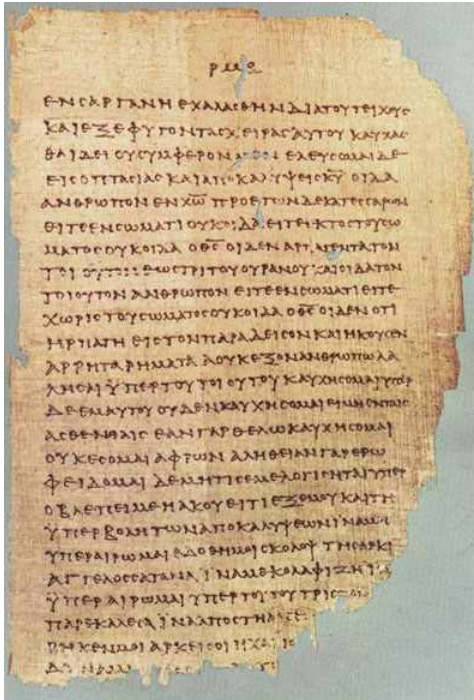 ΕΝ ΣΑΡΓΑΝΗ ΕΧΑΛΑΣΘΗΝ ΔΙΑ ΤΟΥ ΤΕΙΧΟΥΣ
ΚΑΙ ΕΞΕΦΥΓΟΝ ΤΑΣ ΧΕΙΡΑΣ ΑΥΤΟΥ ΚΑΥΧΑΣ
ΘΑΙ ΔΕΙ ΟΥ ΣΥΜΦΕΡΟΝ ΕΛΕΥΣΟΜΑΙ ΔΕ
ΕΙΣ ΟΠΤΑΣΙΑΣ ΚΑΙ ΑΠΟΚΑΛΥΨΕΙΣ ΚΥ ΟΙΔΑ
ΑΝΘΡΩΠΟΝ ΕΝ ΧΩ ΠΡΟ ΕΤΩΝ ΔΕΚΑΤΕΣΣΑΡΩΝ
ΕΙΤΕ ΕΝ ΣΩΜΑΤΙ ΟΥΚ ΟΙΔΑ ΕΙΤΕ ΕΚΤΟΣ ΤΟΥ ΣΩ
ΜΑΤΟΣ ΟΥΚ ΟΙΔΑ Ο ΘΣ ΟΙΔΕΝ ΑΡΠΑΓΕΝΤΑ ΤΟΝ
ΤΟΙΟΥΤΟΝ ΕΩΣ ΤΡΙΤΟΥ ΟΥΡΑΝΟΥ ΚΑΙ ΟΙΔΑ ΤΟΝ
ΤΟΙΟΥΤΟΝ ΑΝΘΡΩΠΟΝ ΕΙΤΕ ΕΝ ΣΩΜΑΤΙ ΕΙΤΕ
ΧΩΡΙΣ ΤΟΥ ΣΩΜΑΤΟΣ ΟΥΚ ΟΙΔΑ Ο ΘΣ ΟΙΔΕΝ ΟΤΙ
ΗΡΠΑΓΗ ΕΙΣ ΤΟΝ ΠΑΡΑΔΕΙΣΟΝ ΚΑΙ ΗΚΟΥΣΕΝ
ΑΡΡΗΤΑ ΡΗΜΑΤΑ Α ΟΥΚ ΕΞΟΝ ΑΝΘΡΩΠΩ ΛΑ
ΛΗΣΑΙ ΫΠΕΡ ΤΟΥ ΤΟΙΟΥΤΟΥ ΚΑΥΧΗΣΟΜΑΙ ΥΠΕΡ
ΔΕ ΕΜΑΥΤΟΥ ΟΥΔΕΝ ΚΑΥΧΗΣΟΜΑΙ ΕΙ ΜΗ ΕΝ ΤΑΙΣ
ΑΣΘΕΝΕΙΑΙΣ ΕΑΝ ΓΑΡ ΘΕΛΩ ΚΑΥΧΗΣΟΜΑΙ
ΟΥΚ ΕΣΟΜΑΙ ΑΦΡΩΝ ΑΛΗΘΕΙΑΝ ΓΑΡ ΕΡΩ
ΦΕΙΔΟΜΑΙ ΔΕ ΜΗ ΤΙΣ ΕΜΕ ΛΟΓΙΣΗΤΑΙ ΥΠΕΡ
Ο ΒΛΕΠΕΙ ΜΕ Η ΑΚΟΥΕΙ ΤΙ ΕΞ ΕΜΟΥ ΚΑΙ ΤΗ
ΫΠΕΡΒΟΛΗ ΤΩΝ ΑΠΟΚΑΛΥΨΕΩΝ ΪΝΑ ΜΗ
ΥΠΕΡΑΙΡΩΜΑΙ ΕΔΟΘΗ ΜΟΙ ΣΚΟΛΟΨ ΤΗ ΣΑΡΚΙ
ΑΓΓΕΛΟΣ ΣΑΤΑΝΑ ΪΝΑ ΜΕ ΚΟΛΑΦΙΖΗ ΙΝΑ
ΫΠΕΡΑΙΡΩΜΑΙ ΥΠΕΡ ΤΟΥΤΟΥ ΤΡΙΣ
ΠΑΡΕΚΑΛΕΣΑ ΙΝΑ ΑΠΟΣΤΗ ΑΠ
ΡΗΚΕΝ ΜΟΙ ΑΡΚΕΙ ΣΟΙ Η ΧΑΡΙΣ